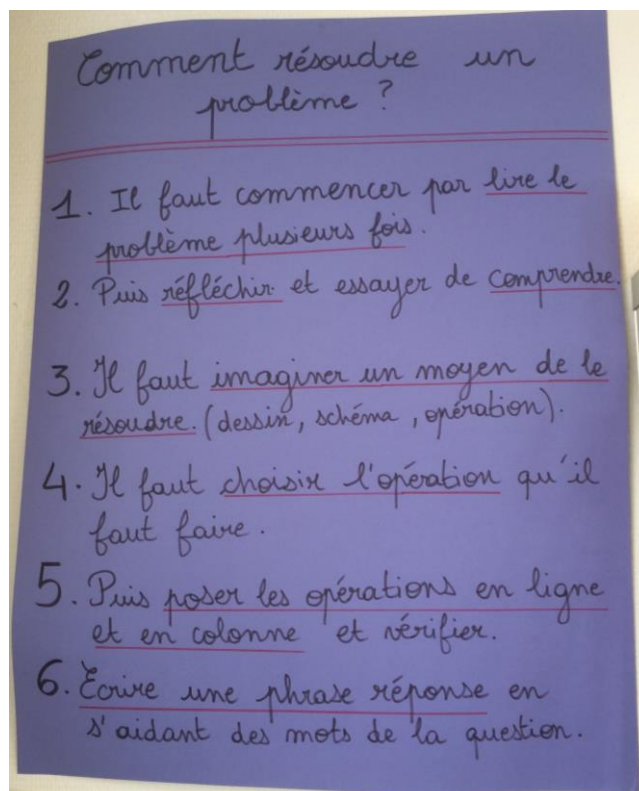 Comment résoudre un
problème ?
1. Il faut commencer par lire le
problème plusieurs fois.
2. Puis réfléchir et essayer de comprendre.
3. Il faut imaginer un moyen de le
résoudre. (dessin, schéma, opération).
4. Il faut choisir l'opération qu'il
faut faire.
5. Puis poser les opérations en ligne
et en colonne et vérifier.
6. Ecrire une phrase réponse en
s'aidant des mots de la question.